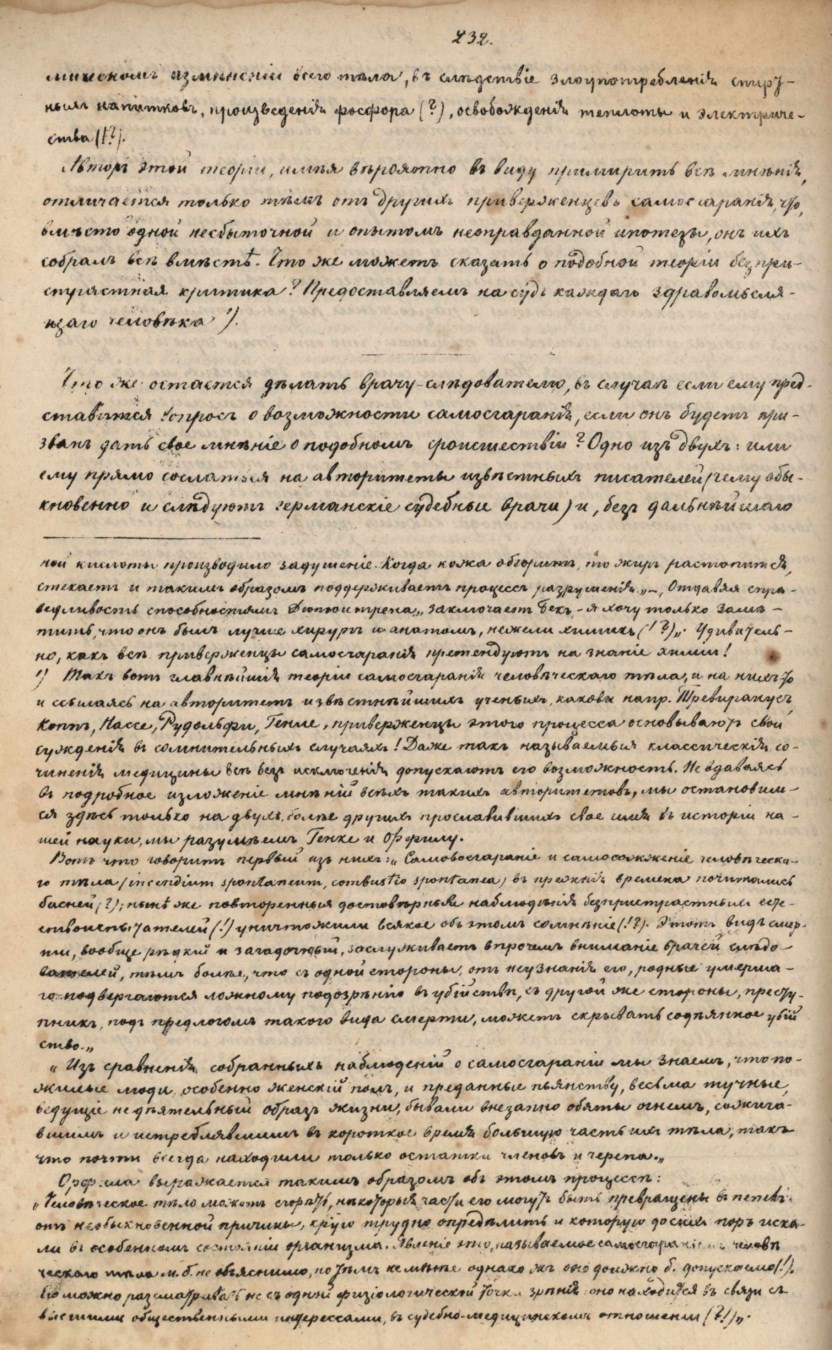 232.
мическомъ измѣненіи всего тѣла, въ слѣдствіе злоупотребленія спирт-
ныхъ напитковъ, произведенія фосфора (?), освобожденія теплоты и электриче-
ства (!?).
Авторъ этой теоріи, имѣя вѣроятно въ виду примирить всѣ мнѣнія,
отличается только тѣмъ отъ другихъ приверженцевъ самосгаранія, что,
вмѣсто одной несбыточной и опытомъ неоправданной ипотезы, онъ ихъ
собралъ всѣ вмѣстѣ. Что же можетъ сказать о подобной теоріи безпри-
страстная критика? Предоставляемъ на судъ каждаго здравомысля-
щаго человѣка 1).
Что же остается дѣлать врачу-слѣдователю, въ случаѣ если ему пред-
ставится вопросъ о возможности самосгаранія, если онъ будетъ при-
званъ дать свое мнѣніе о подобномъ происшествіи? Одно изъ двухъ: или
ему прямо сослаться на авторитеты извѣстныхъ писателей (чему обы-
кновенно и слѣдуютъ германскіе судебные врачи) и, безъ дальнѣйшаго
ной кислоты производило задушеніе. Когда кожа обгоритъ, то жиръ растопится,
стекаетъ и такимъ образомъ поддерживаетъ процессъ разрушенія." – „Отдавая спра-
ведливость способностямъ Дюпюитрена," заключаетъ Бекъ, – я хочу только замѣ-
тить, что онъ былъ лучше хирургъ и анатомъ, нежели химикъ (!?)„. Удивитель-
но, какъ всѣ приверженцы самосгаранія претендуютъ на знаніе химіи!
1) Такъ вотъ главнѣйшія теоріи самосгаранія человѣческаго тѣла, и на нихъ-то
и ссылаясь на авторитетъ извѣстнѣйшихъ ученыхъ, каковы напр. Тревиранусъ
Коппъ, Нассе, Рудольфи, Генле, приверженцы этого процесса основываютъ свои
сужденія въ сомнительныхъ случаяхъ! Даже такъ называемыя классическія со-
чиненія медицины всѣ безъ исключенія допускаютъ его возможность. Не вдаваясь
въ подробное изложеніе мнѣній всѣхъ такихъ авторитетовъ, мы остановим-
ся здѣсь только на двухъ, болѣе другихъ прославившихъ свое имя въ исторіи на-
шей науки, мы разумѣемъ Генке и Орфилу.
Вотъ что говоритъ первый изъ нихъ: „Самовозгараніе и самосожженіе человѣческа-
го тѣла (incendium spontaneum, combustio spontanea) въ прежнія времена почитались
баснею (?); нынѣ же повторенныя достовѣрныя наблюденія безпристрастными есте-
ствоиспытателей (!) уничтожили всякое объ этомъ сомнѣніе (!?). Этотъ видъ смер-
ти, вообще рѣдкій и загадочный, заслуживаетъ впрочемъ вниманіе врачей слѣдо-
вателей, тѣмъ болѣе, что съ одной стороны, отъ неузнанія его, родные умерша-
го подвергаются ложному подозрѣнію въ убійствѣ, съ другой же стороны, престу-
пникъ, подъ предлогомъ такого вида смерти, можетъ скрывать содѣянное убій
ство.„
„Изъ сравненія собранныхъ наблюденій о самосгараніи мы знаемъ, что по-
жилые люди, особенно женскій полъ, и преданные пьянству, весьма тучные,
ведущіе недѣятельный образъ жизни, бывали внезапно обяты огнемъ, сожига-
вшимъ и истреблявшимъ въ короткое время большую часть ихъ тѣла, такъ
что почти всегда находили только остатки членовъ и черепа.„
Орфила выражается такимъ образомъ объ этомъ процессѣ:
„Человѣческое тѣло можетъ сгорать, некоторыя части его могутъ быть превращены въ пепелъ
отъ необыкновенной причины, крую трудно опредѣлить и которую доселѣ поръ иска-
ли въ особенномъ состояніи организма. Явленіе это, называемое самосгараніемъ человѣ
ческаго тѣла м.б. не объяснимо, но тѣмъ не менѣе однако жъ оно должно б. допускаемо (!).
Его можно разсматривать не съ одной физіологической точки зрѣнія: оно находится въ связи съ
высшими общественными интересами, въ судебно-медицинскомъ отношеніи (?!)„.